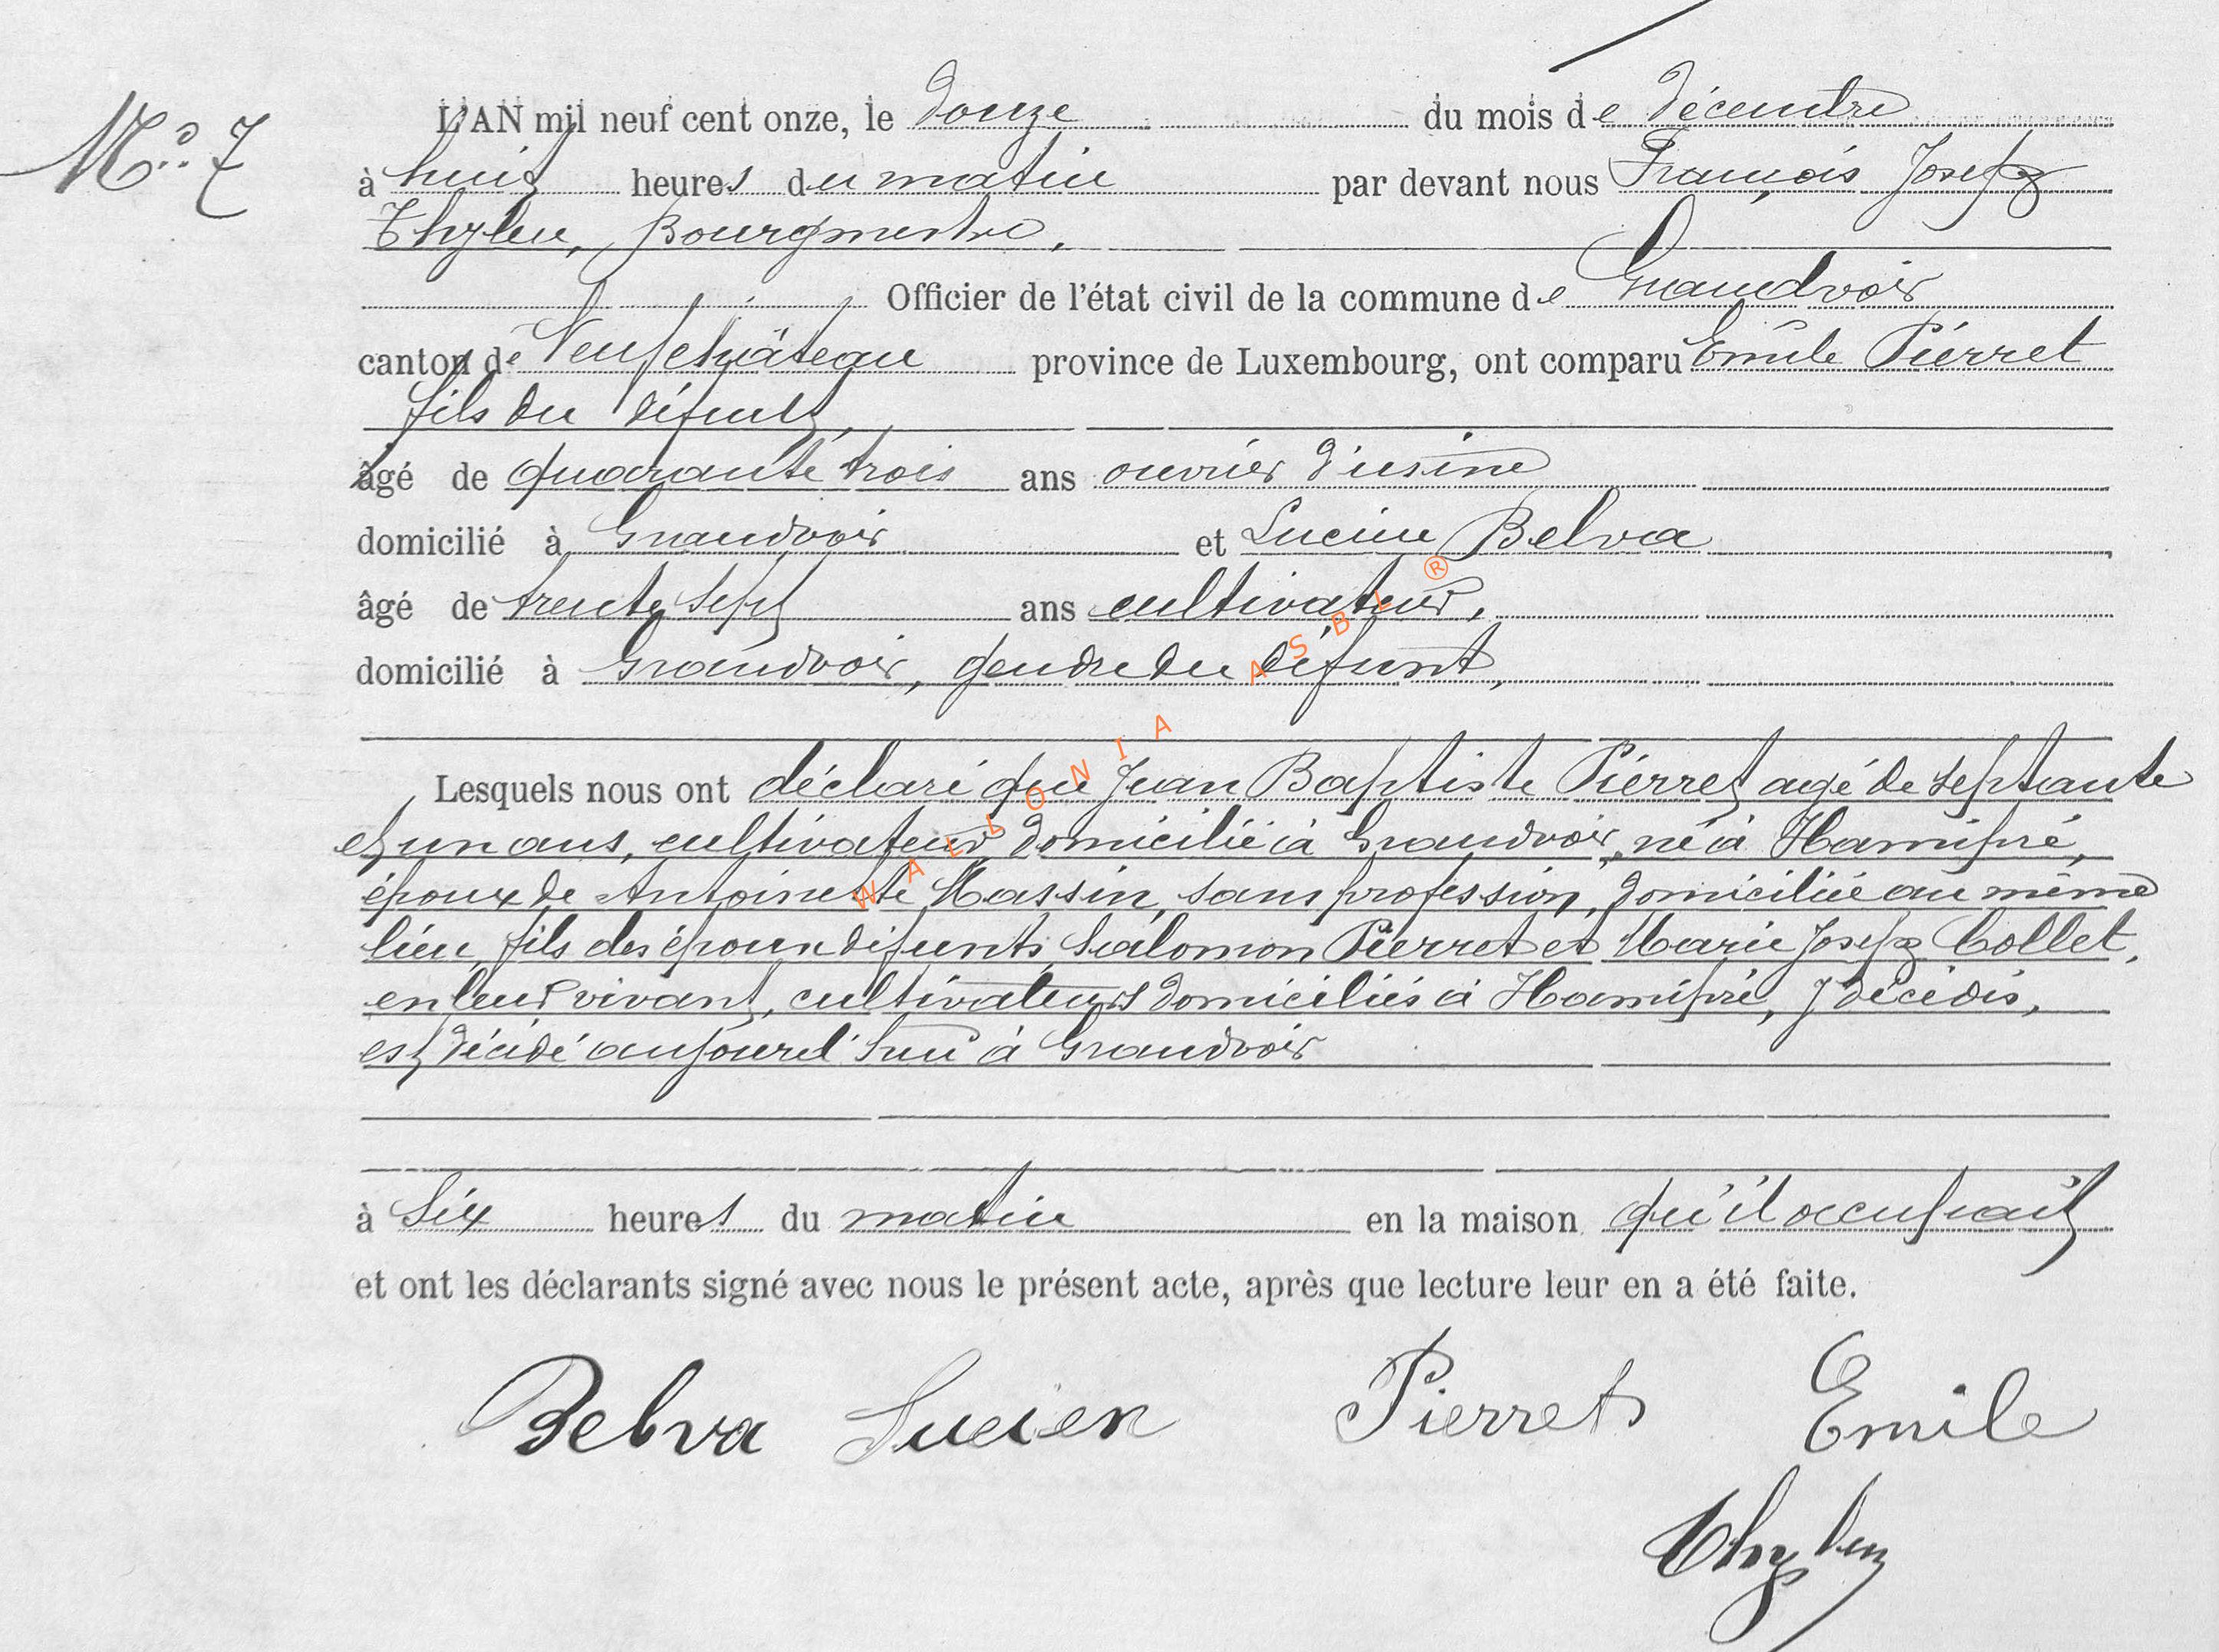 N° 7
L'AN mil neuf cent onze, le douze du mois de décembre
à huit heures du matin par devant nous François Joseph
Thylen, Bourgmestre,
Officier de l'état civil de la commune de Grandvoir
canton de Neufchâteau province de Luxembourg, ont comparu Emile Pierret
fils du défunt,
âgé de quarante trois ans ouvrier d'usine
domicilié à Grandvoir et Lucien Belva
âgé de trente sept ans cultivateur,
domicilié à Grandvoir, gendre du défunt,
Lesquels nous ont déclaré que Jean Baptiste Pierret agé de septante
et un ans, cultivateur domicilié à Grandvoir, né à Hamipré,
époux de Antoinette Massin, sans profession, domiciliée au même
lieu, fils des époux défunts Salomon Pierret et Marie Joseph Collet,
en leur vivant, cultivateurs domiciliés à Hamipré, y décédés,
est décédé aujourd'hui à Grandvoir
à six heures du matin en la maison qu'il occupait
et ont les déclarants signé avec nous le présent acte, après que lecture leur en a été faite.
Belva Lucien Pierret Emile
Thylen
WALLONIA ASBL ®